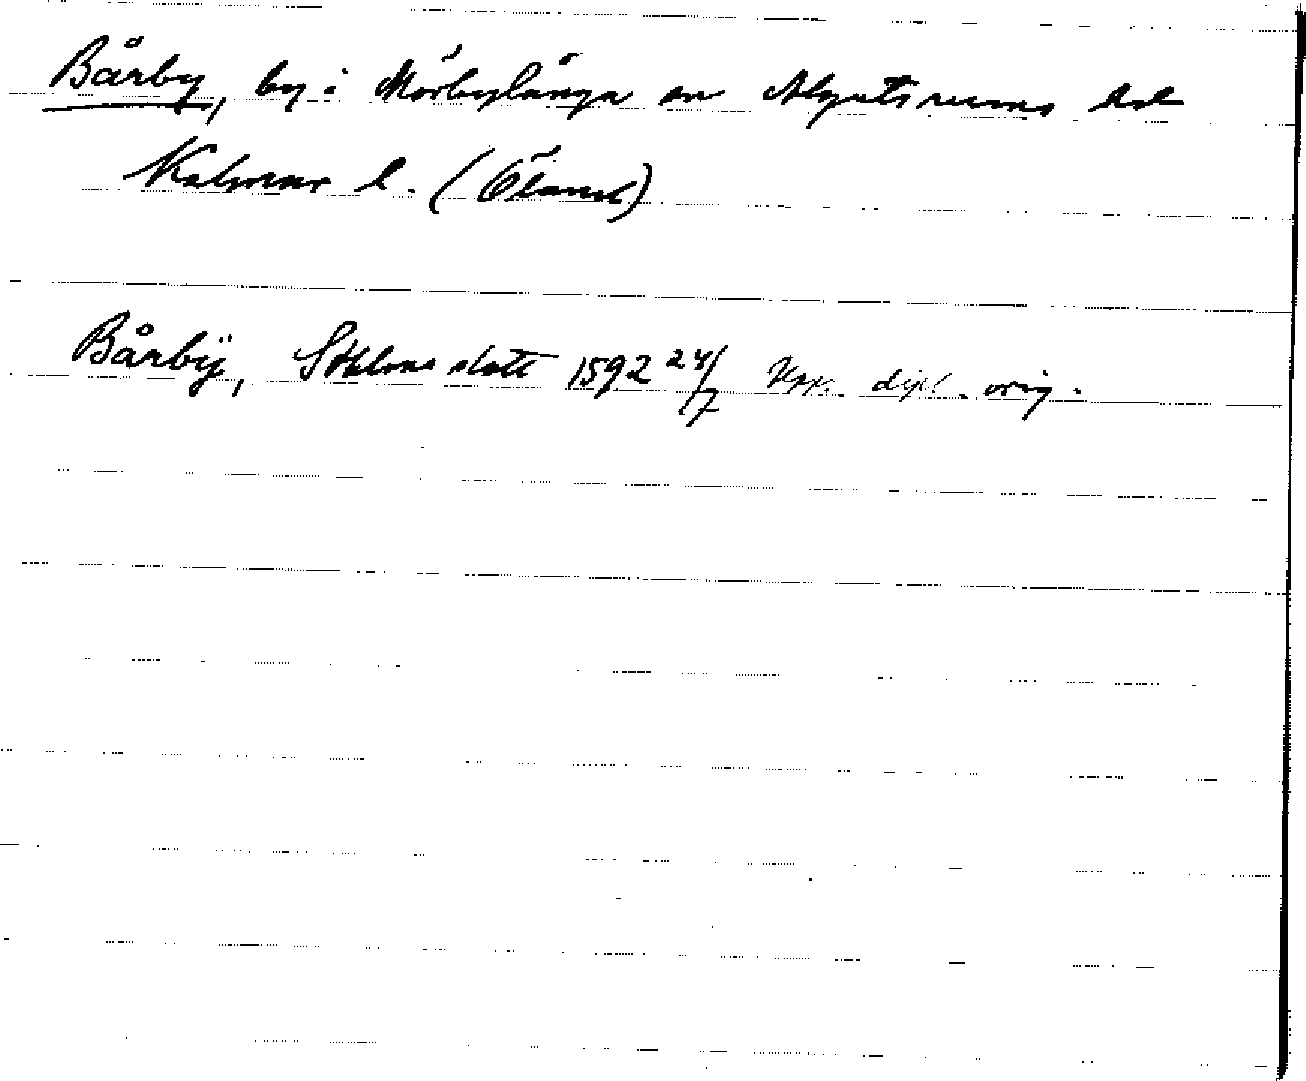 Bårby, by i Mörbylånga sn Algutsrums hd
Kalmar l. (Öland)
Bårbÿ, Sthlms slott 1592 24/7 Upps. dipl. orig.